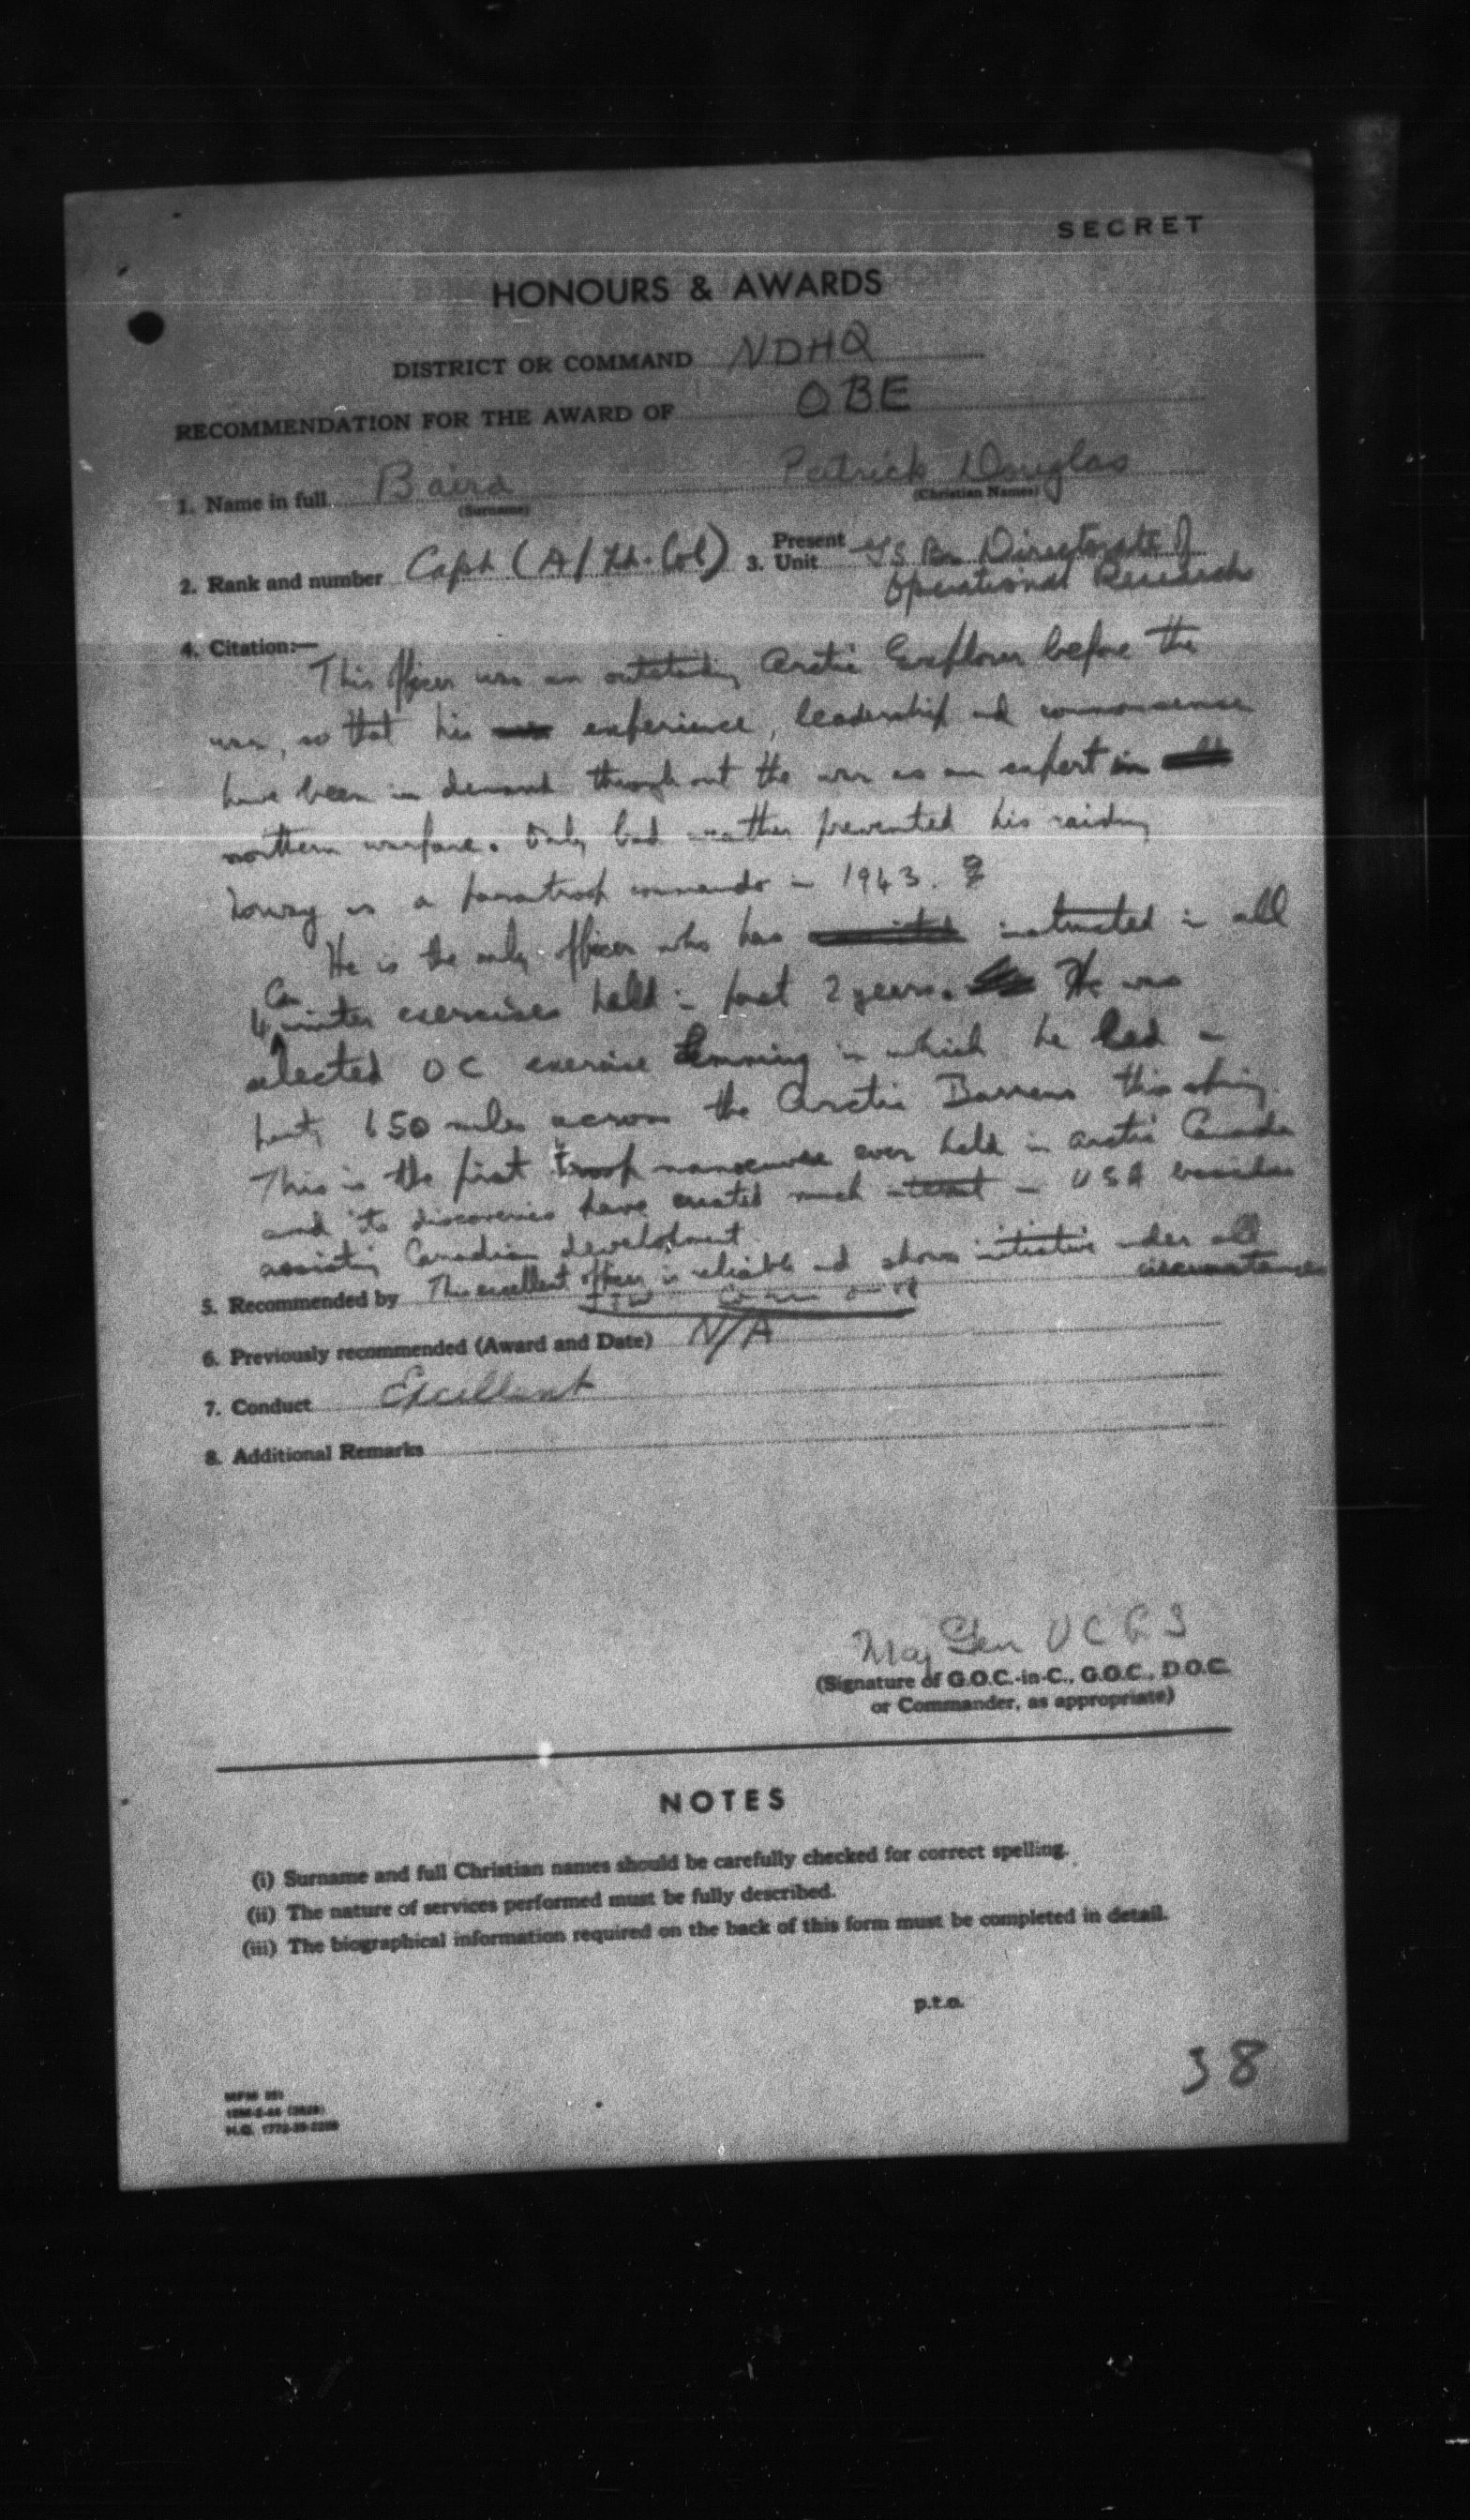 SECRET
HONOURS & AWARDS
DISTRICT OR COMMAND NDHQ
RECOMMENDATION FOR THE AWARD OF OBE
1. Name in full Baird Patrick Douglas
(Surname) (Christian Names)
2. Rank and number Capt (A/Lt. Col) 3. Present Unit GS Br. Directorate of
Operational Research
4. Citation:—
This officer was an outstanding Arctic Explorer before the
war, so that his experience, leadership and commonsense
have been in demand throughout the war as an expert in
northern warfare. Only bad weather prevented his raiding
Norway as a paratroop commando in 1943.
He is the only officer who has instructed in all
4 Cdn winter exercises held in past 2 years. He was
selected OC exercise Lemming in which he led a
party 650 miles across the Arctic Barrens this spring.
This is the first troop manoeuvre ever held in arctic Canada
and its discoveries have created much interest in USA besides
assisting Canadian development
5. Recommended by This excellent officer is reliable and shows initiative under all
circumstances
6. Previously recommended (Award and Date) N/A
7. Conduct Excellent
8. Additional Remarks
Maj Gen VCGS
(Signature of G.O.C.-in-C., G.O.C., D.O.C.
or Commander, as appropriate)
NOTES
(i) Surname and full Christian names should be carefully checked for correct spelling.
(ii) The nature of services performed must be fully described.
(iii) The biographical information required on the back of this form must be completed in detail.
p.t.o.
38
H.Q. 1772-39-